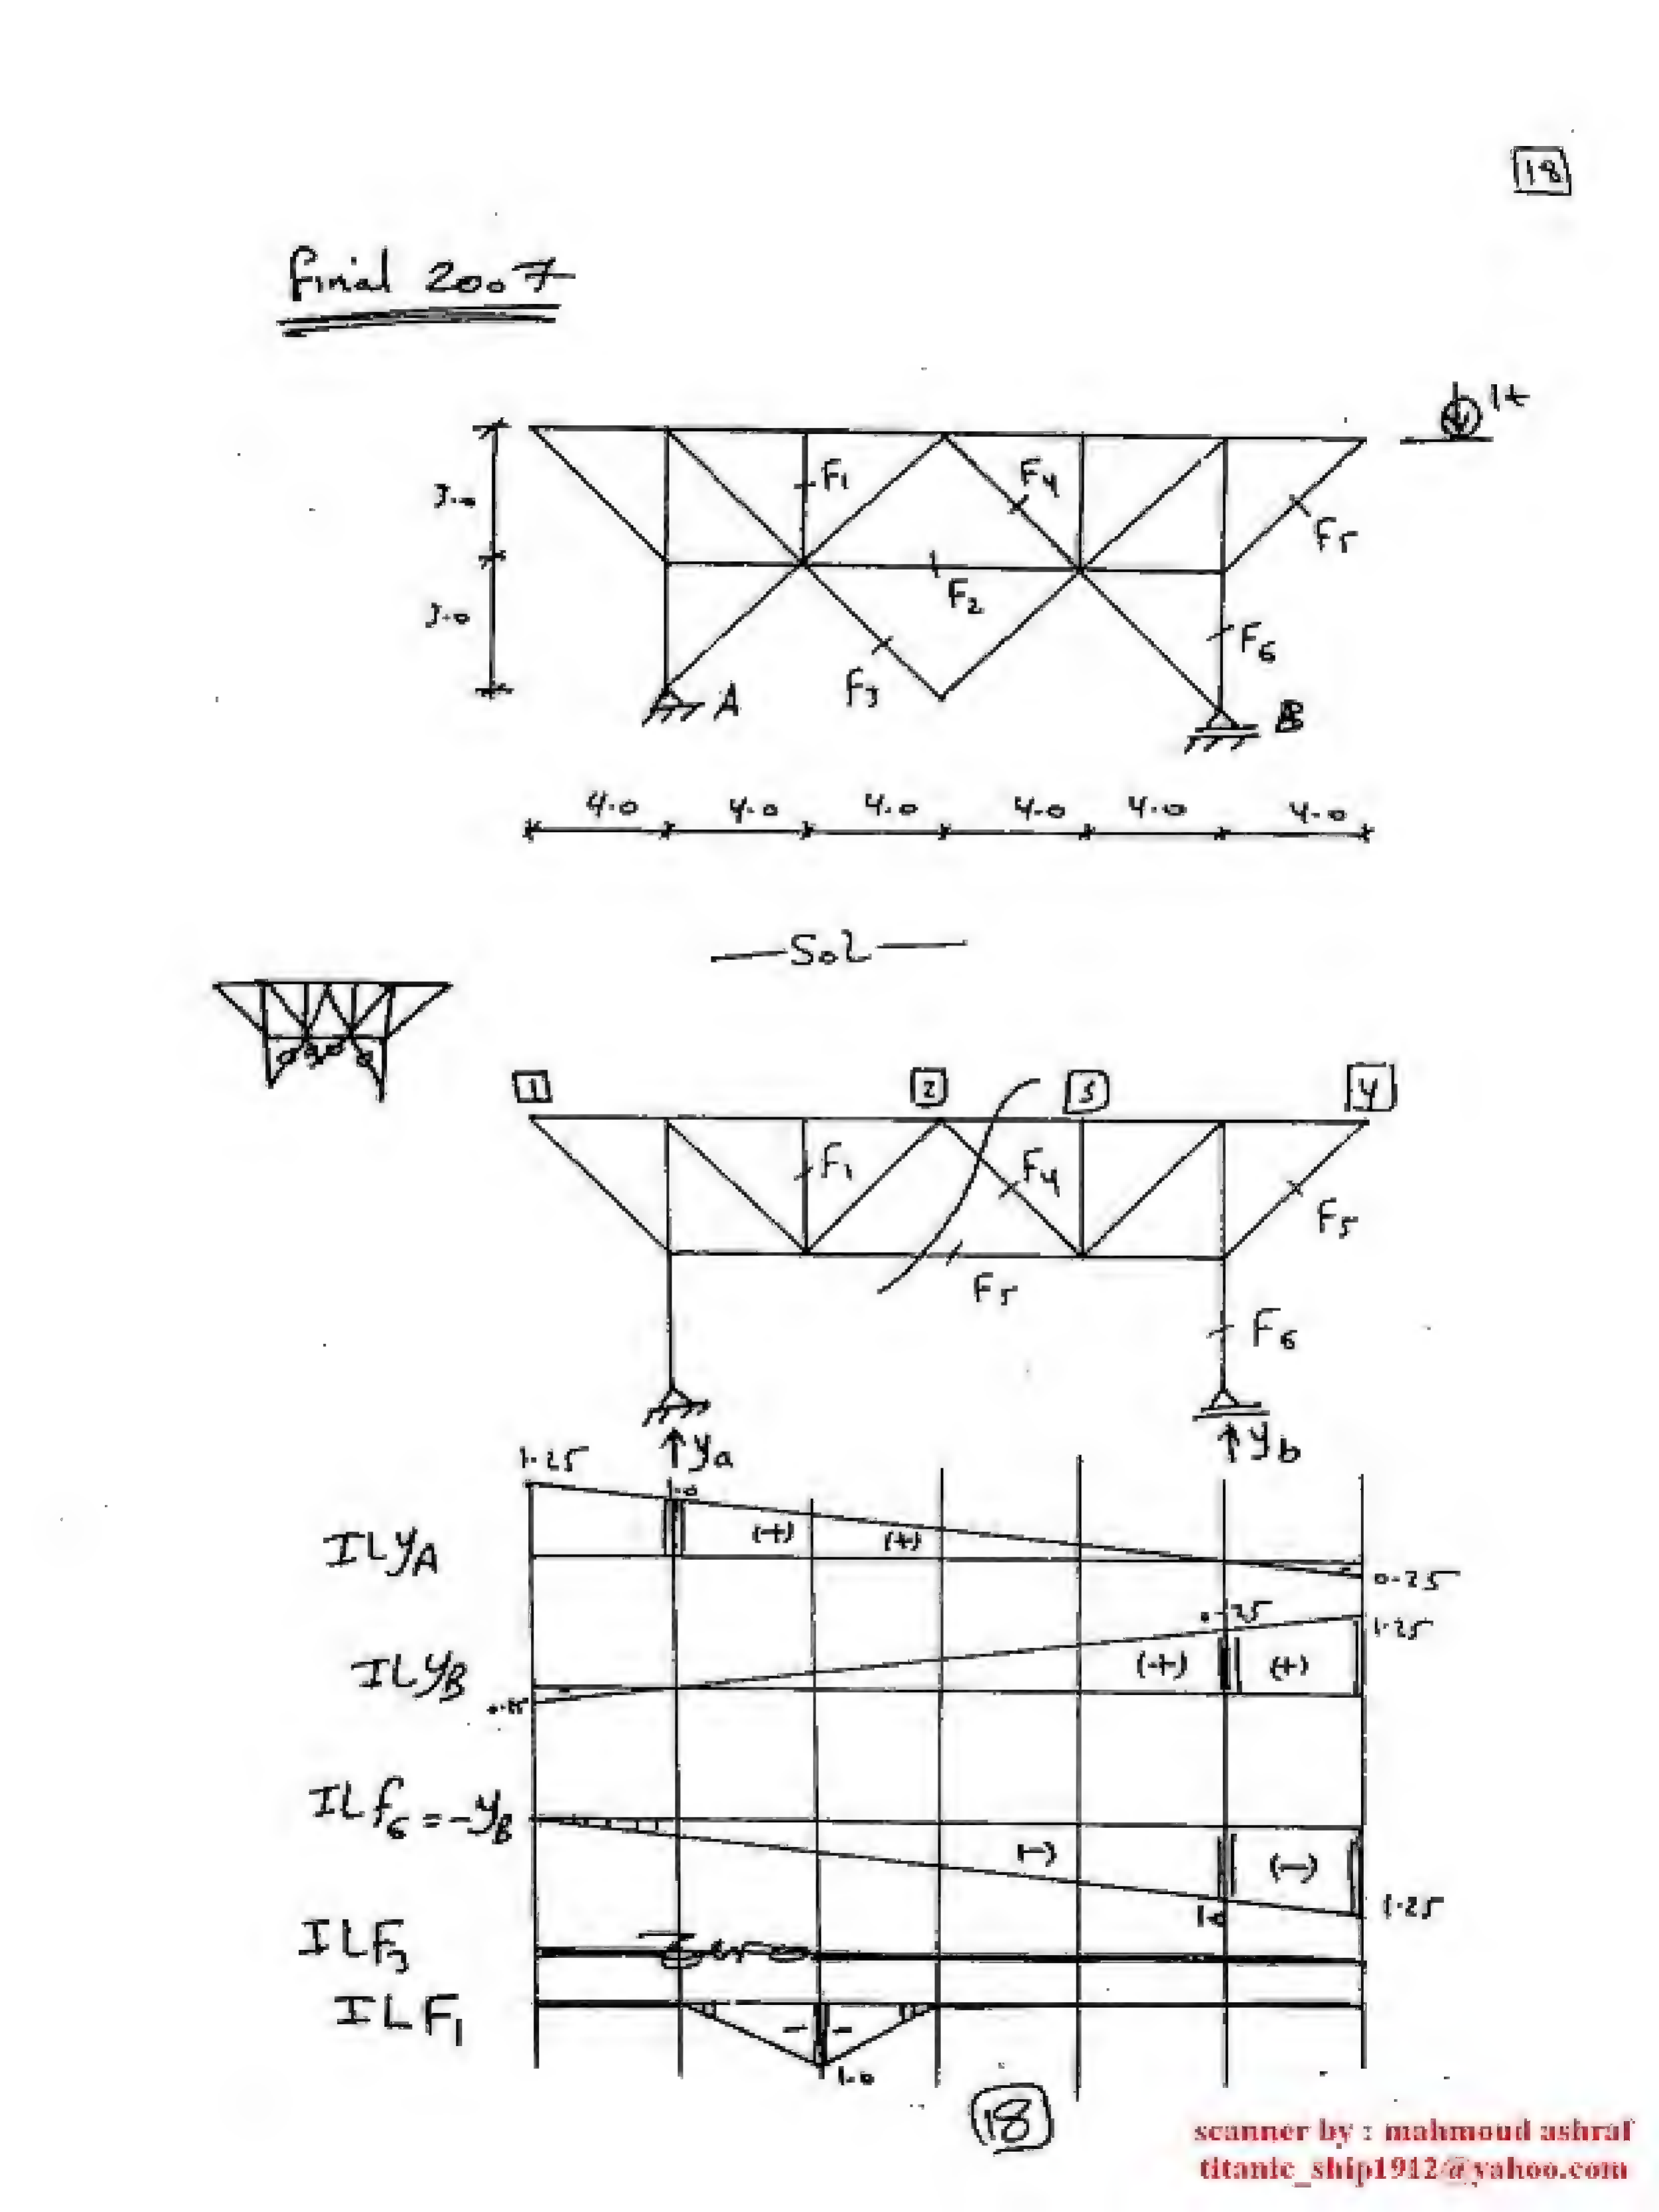 18
Final 2007
1t
F1
F4
3.0
F5
F2
3.0
F6
F3
A
B
4.0 4.0 4.0 4.0 4.0 4.0
Sol
1 2 3 4
F1
F4
F5
F5
F6
ya
yb
1.25
1.0
ILyA (+) (+)
0.25
0.25
1.25
ILyB (+) (+)
ILf6 = -yB
(-) (-)
1.25
ILF3 Zero
ILF1
- -
1.0
18
scanner by : mahmoud ashraf
titanic_ship1912@yahoo.com